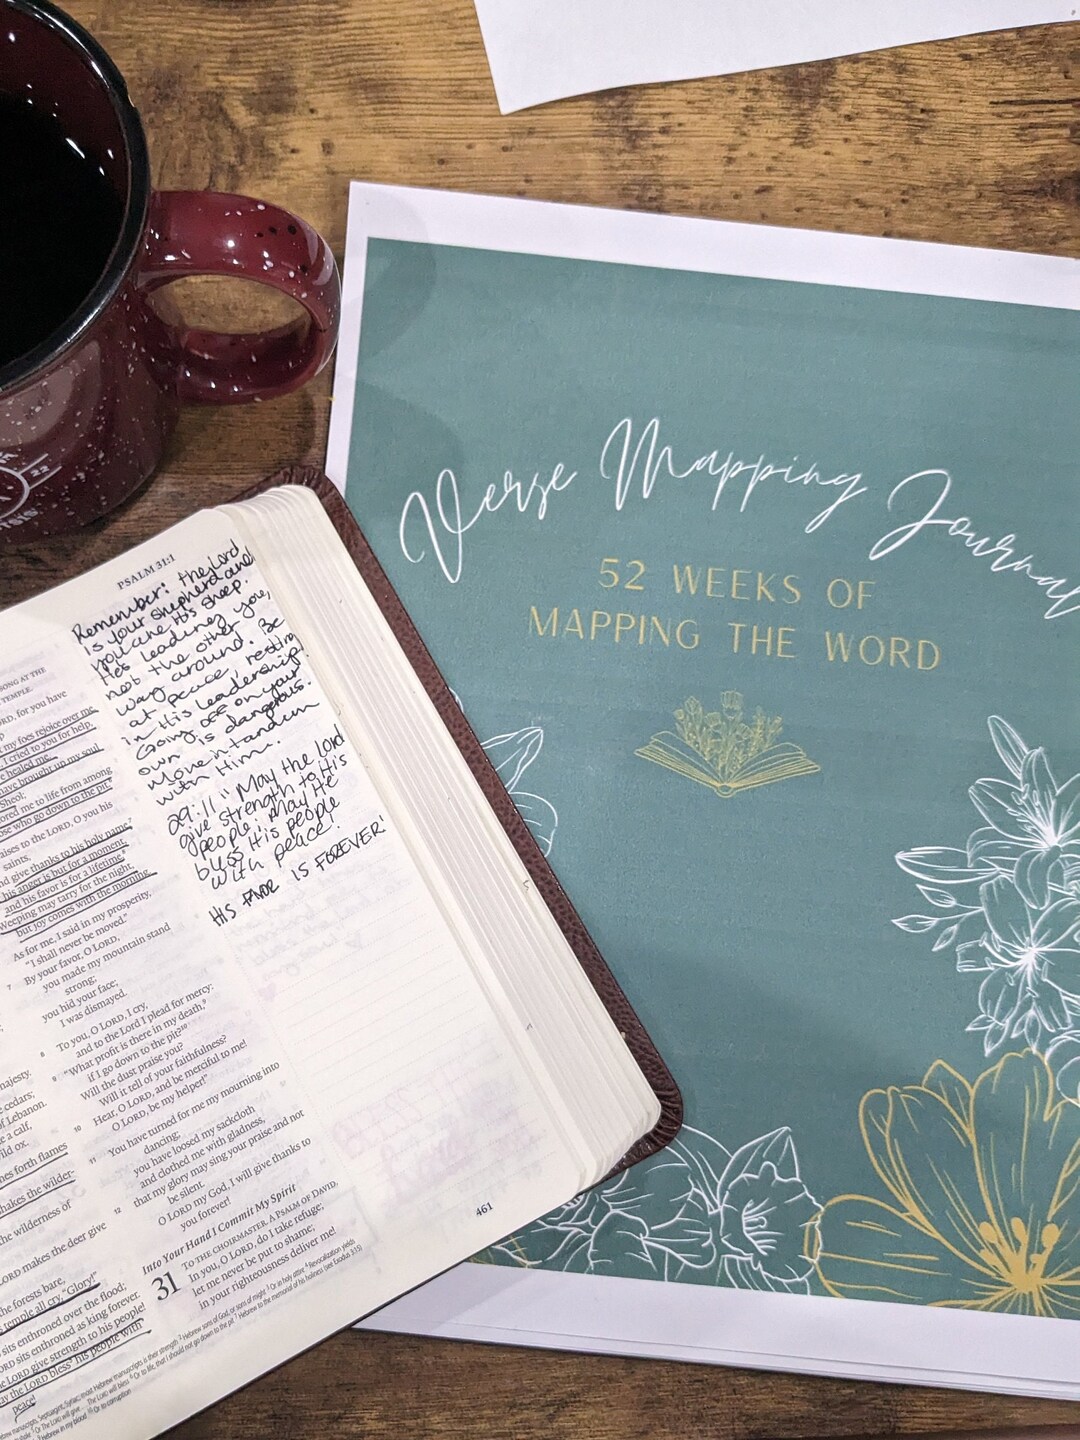 22
Verse Mapping Journal
52 WEEKS OF
MAPPING THE WORD
PSALM 31:1
Remember: the Lord
is your shepherd and
you are His sheep.
He's leading you,
not the other
way around. Be
at peace, resting
in His leadership.
Going off on your
own is dangerous.
Move in tandem
with Him.
29:11 "May the Lord
give strength to His
people; May He
bless His people
with peace!
HIS FAVOR IS FOREVER!
SONG AT THE
TEMPLE.
ORD, for you have
up
my foes rejoice over me.
I cried to you for help,
healed me.
have brought up my soul
Sheol;
ored me to life from among
ose who go down to the pit.
aises to the LORD, O you his
saints,
nd give thanks to his holy name.
his anger is but for a moment,
and his favor is for a lifetime.
Weeping may tarry for the night,
but joy comes with the morning.
As for me, I said in my prosperity,
"I shall never be moved."
7 By your favor, O LORD,
you made my mountain stand
strong;
you hid your face;
I was dismayed.
8 To you, O LORD, I cry,
and to the Lord I plead for mercy:
9 "What profit is there in my death,
if I go down to the pit?
Will the dust praise you?
Will it tell of your faithfulness?
10 Hear, O LORD, and be merciful to me!
O LORD, be my helper!"
11 You have turned for me my mourning into
dancing;
you have loosed my sackcloth
and clothed me with gladness,
12 that my glory may sing your praise and not
be silent.
O LORD my God, I will give thanks to
you forever!
Into Your Hand I Commit My Spirit
31 TO THE CHOIRMASTER. A PSALM OF DAVID.
In you, O LORD, do I take refuge;
let me never be put to shame;
in your righteousness deliver me!
461
majesty.
cedars;
of Lebanon.
e a calf,
ild ox.
es forth flames
hakes the wilder-
he wilderness of
LORD makes the deer give
the forests bare,
temple all cry, "Glory!"
sits enthroned over the flood;
ORD sits enthroned as king forever.
e LORD give strength to his people!
ay the LORD bless his people with
peace!